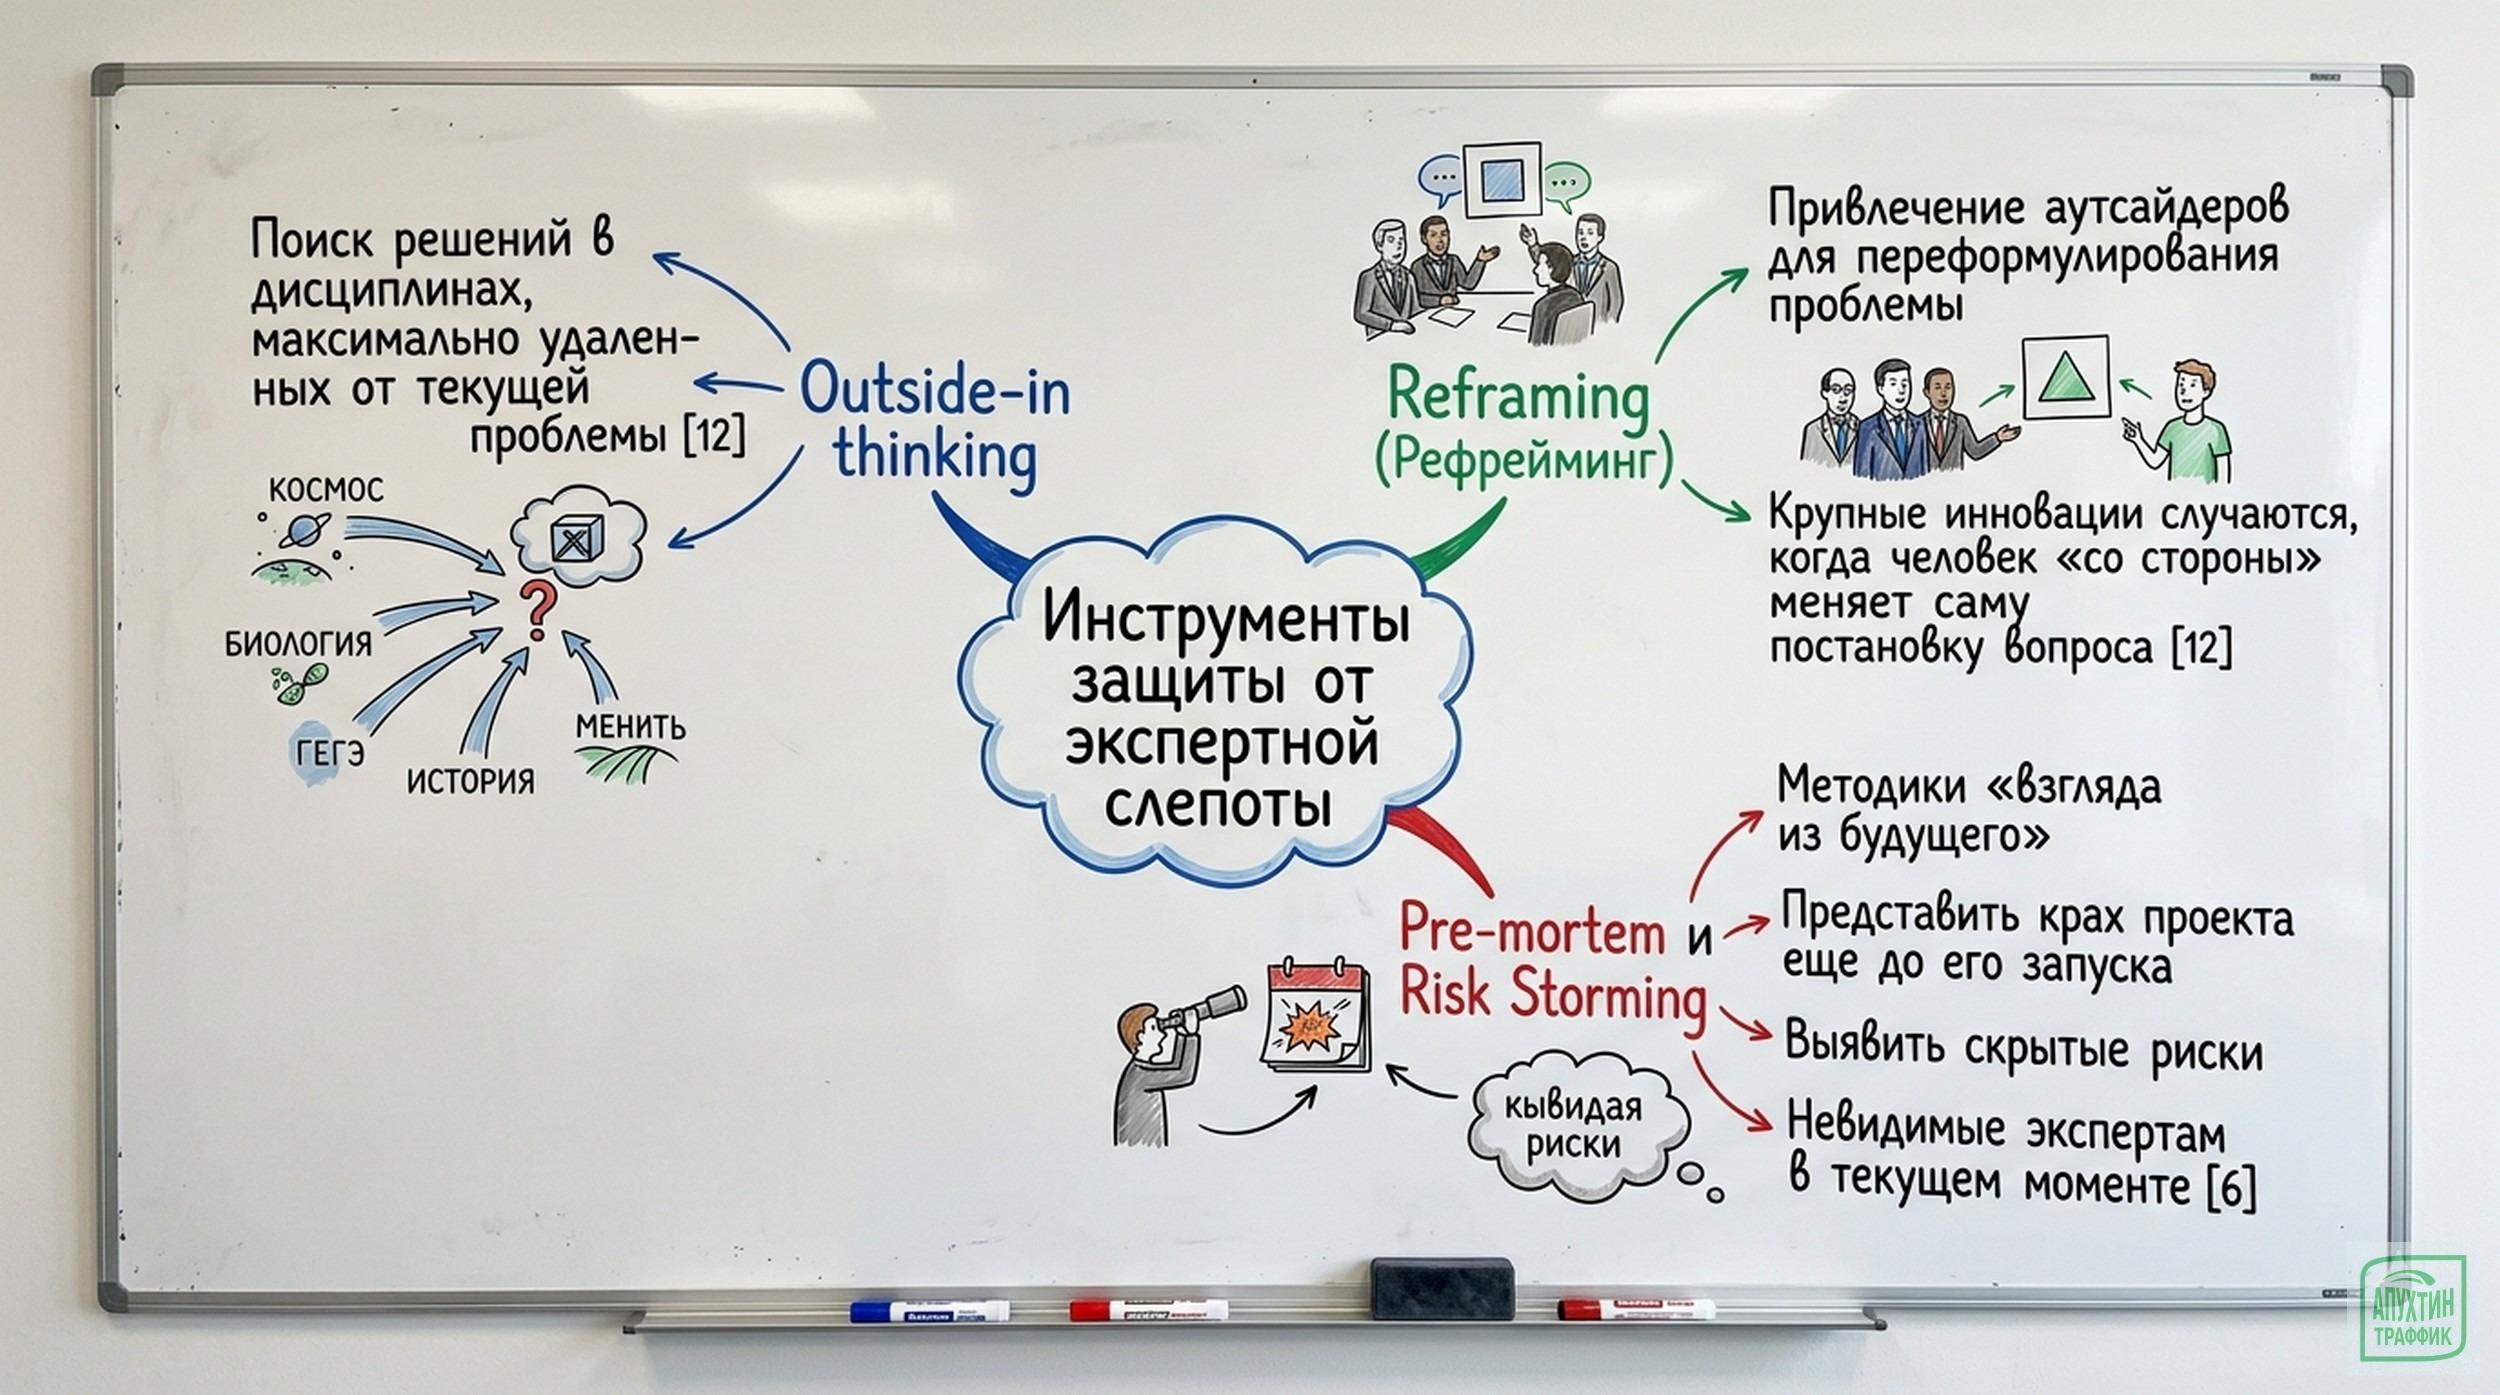 Поиск решений в
дисциплинах,
максимально удален-
ных от текущей
проблемы [12]
Outside-in
thinking
КОСМОС
БИОЛОГИЯ
ГЕГЭ
ИСТОРИЯ
МЕНИТЬ
?
Инструменты
защиты от
экспертной
слепоты
Reframing
(Рефрейминг)
Привлечение аутсайдеров
для переформулирования
проблемы
Крупные инновации случаются,
когда человек «со стороны»
меняет саму
постановку вопроса [12]
Pre-mortem и
Risk Storming
Методики «взгляда
из будущего»
Представить крах проекта
еще до его запуска
Выявить скрытые риски
Невидимые экспертам
в текущем моменте [6]
кывидая
риски
АПУХТИН
ТРАФФИК